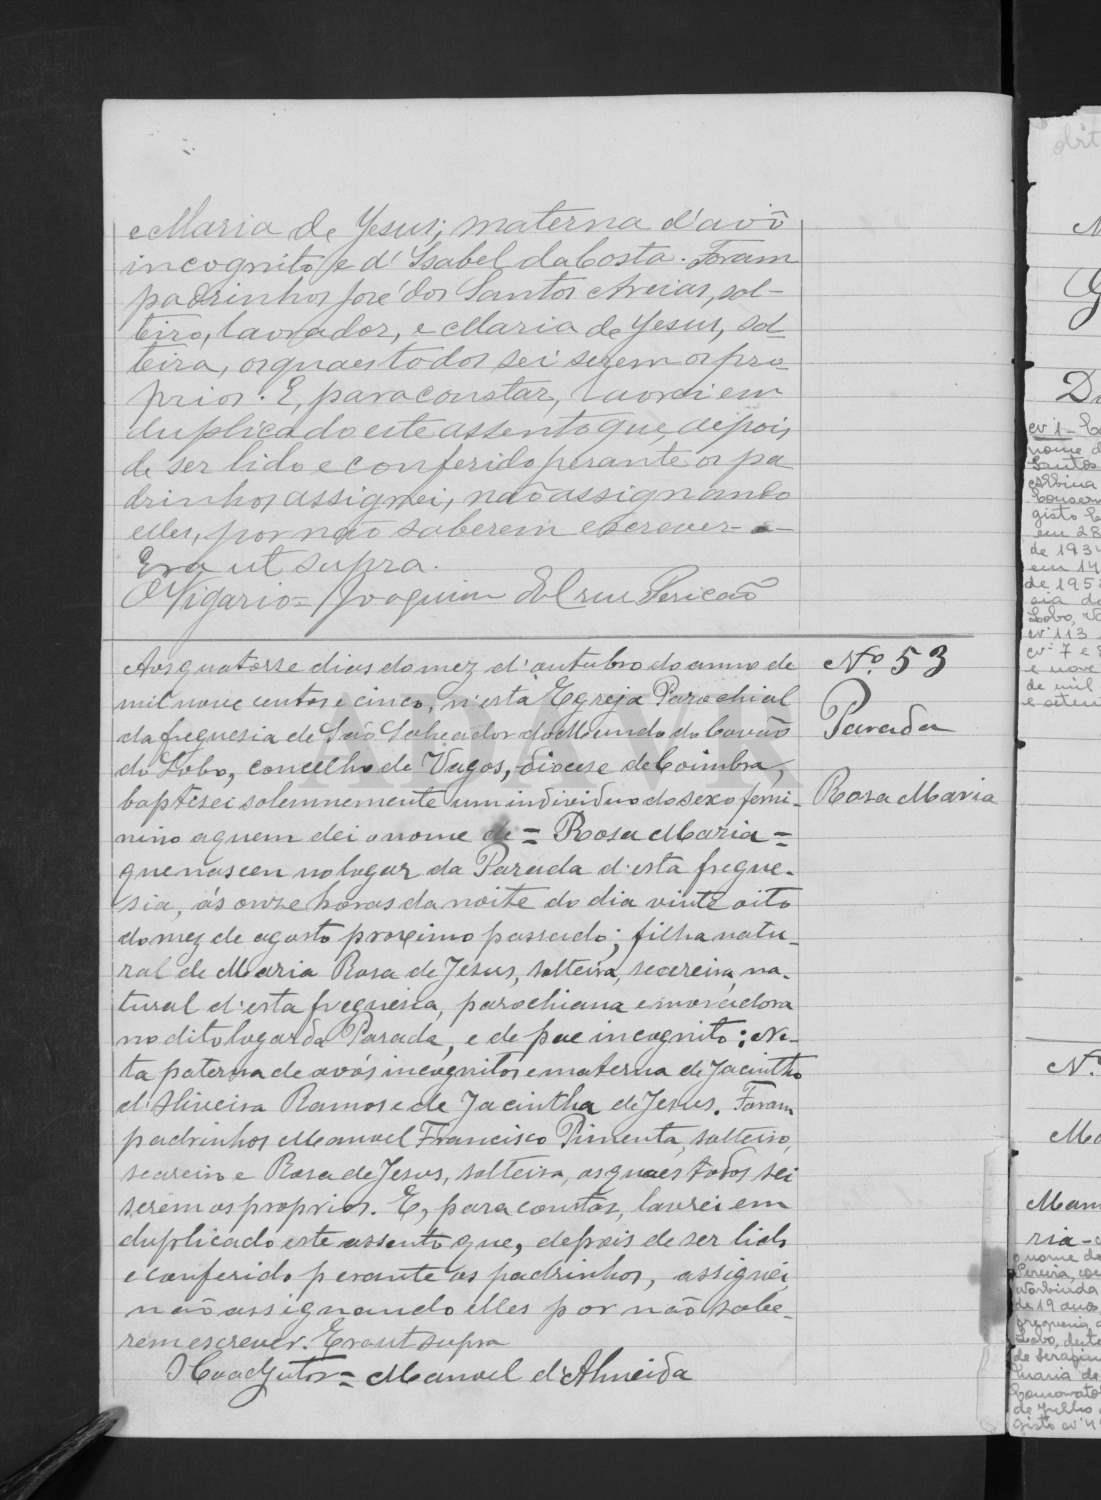 e Maria de Jesus; materna d'avô
incognito, e d'Isabel da Costa. Foram
padrinhos José dos Santos Areias, sol-
teiro, lavrador, e Maria de Jesus, sol-
teira, os quaes todos sei serem os pro-
prios. E, para constar, lavrei em
duplicado este assento que, depois,
de ser lido e conferido perante os pa
drinhos, assignei, não assignando
elles, por não saberem escrever. -
Era ut supra.
O Vigario = Joaquim da Cruz Pericão
Aos quatorse dias do mez d'outubro do anno de
mil nove centos e cinco, n'esta Egreja Parochial
da freguesia de São Salvador do Mundo do Covão
do Lobo, concelho de Vagos, diocese de Coimbra,
baptisei solemnemente um individuo do sexo femi-
nino a quem dei o nome de = Rosa Maria =
que nasceu no lugar da Parada d'esta fregue-
sia, ás onze horas da noite do dia vinte oito
do mez de agosto proximo passado; filha natu-
ral de Maria Rosa de Jesus, solteira, seareira, na-
tural d'esta freguesia, parochiana e moradora
no dito lugar da Parada, e de pae incognito; Ne-
ta paterna de avós incognitos e materna de Jacintho
d'Oliveira Ramos e de Jacintha de Jesus. Foram
padrinhos Manuel Francisco Pimenta, solteiro,
seareiro e Rosa de Jesus, solteira, os quaes todos sei
serem os proprios. E, para constar, lavrei em
duplicado este assento que, depois de ser lido
e conferido perante os padrinhos, assignei,
não assignando elles por não sabe-
rem escrever. Era ut supra
O Coadjutor = Manuel d'Almeida
Nº 53
Parada
Rosa Maria
ADAVR